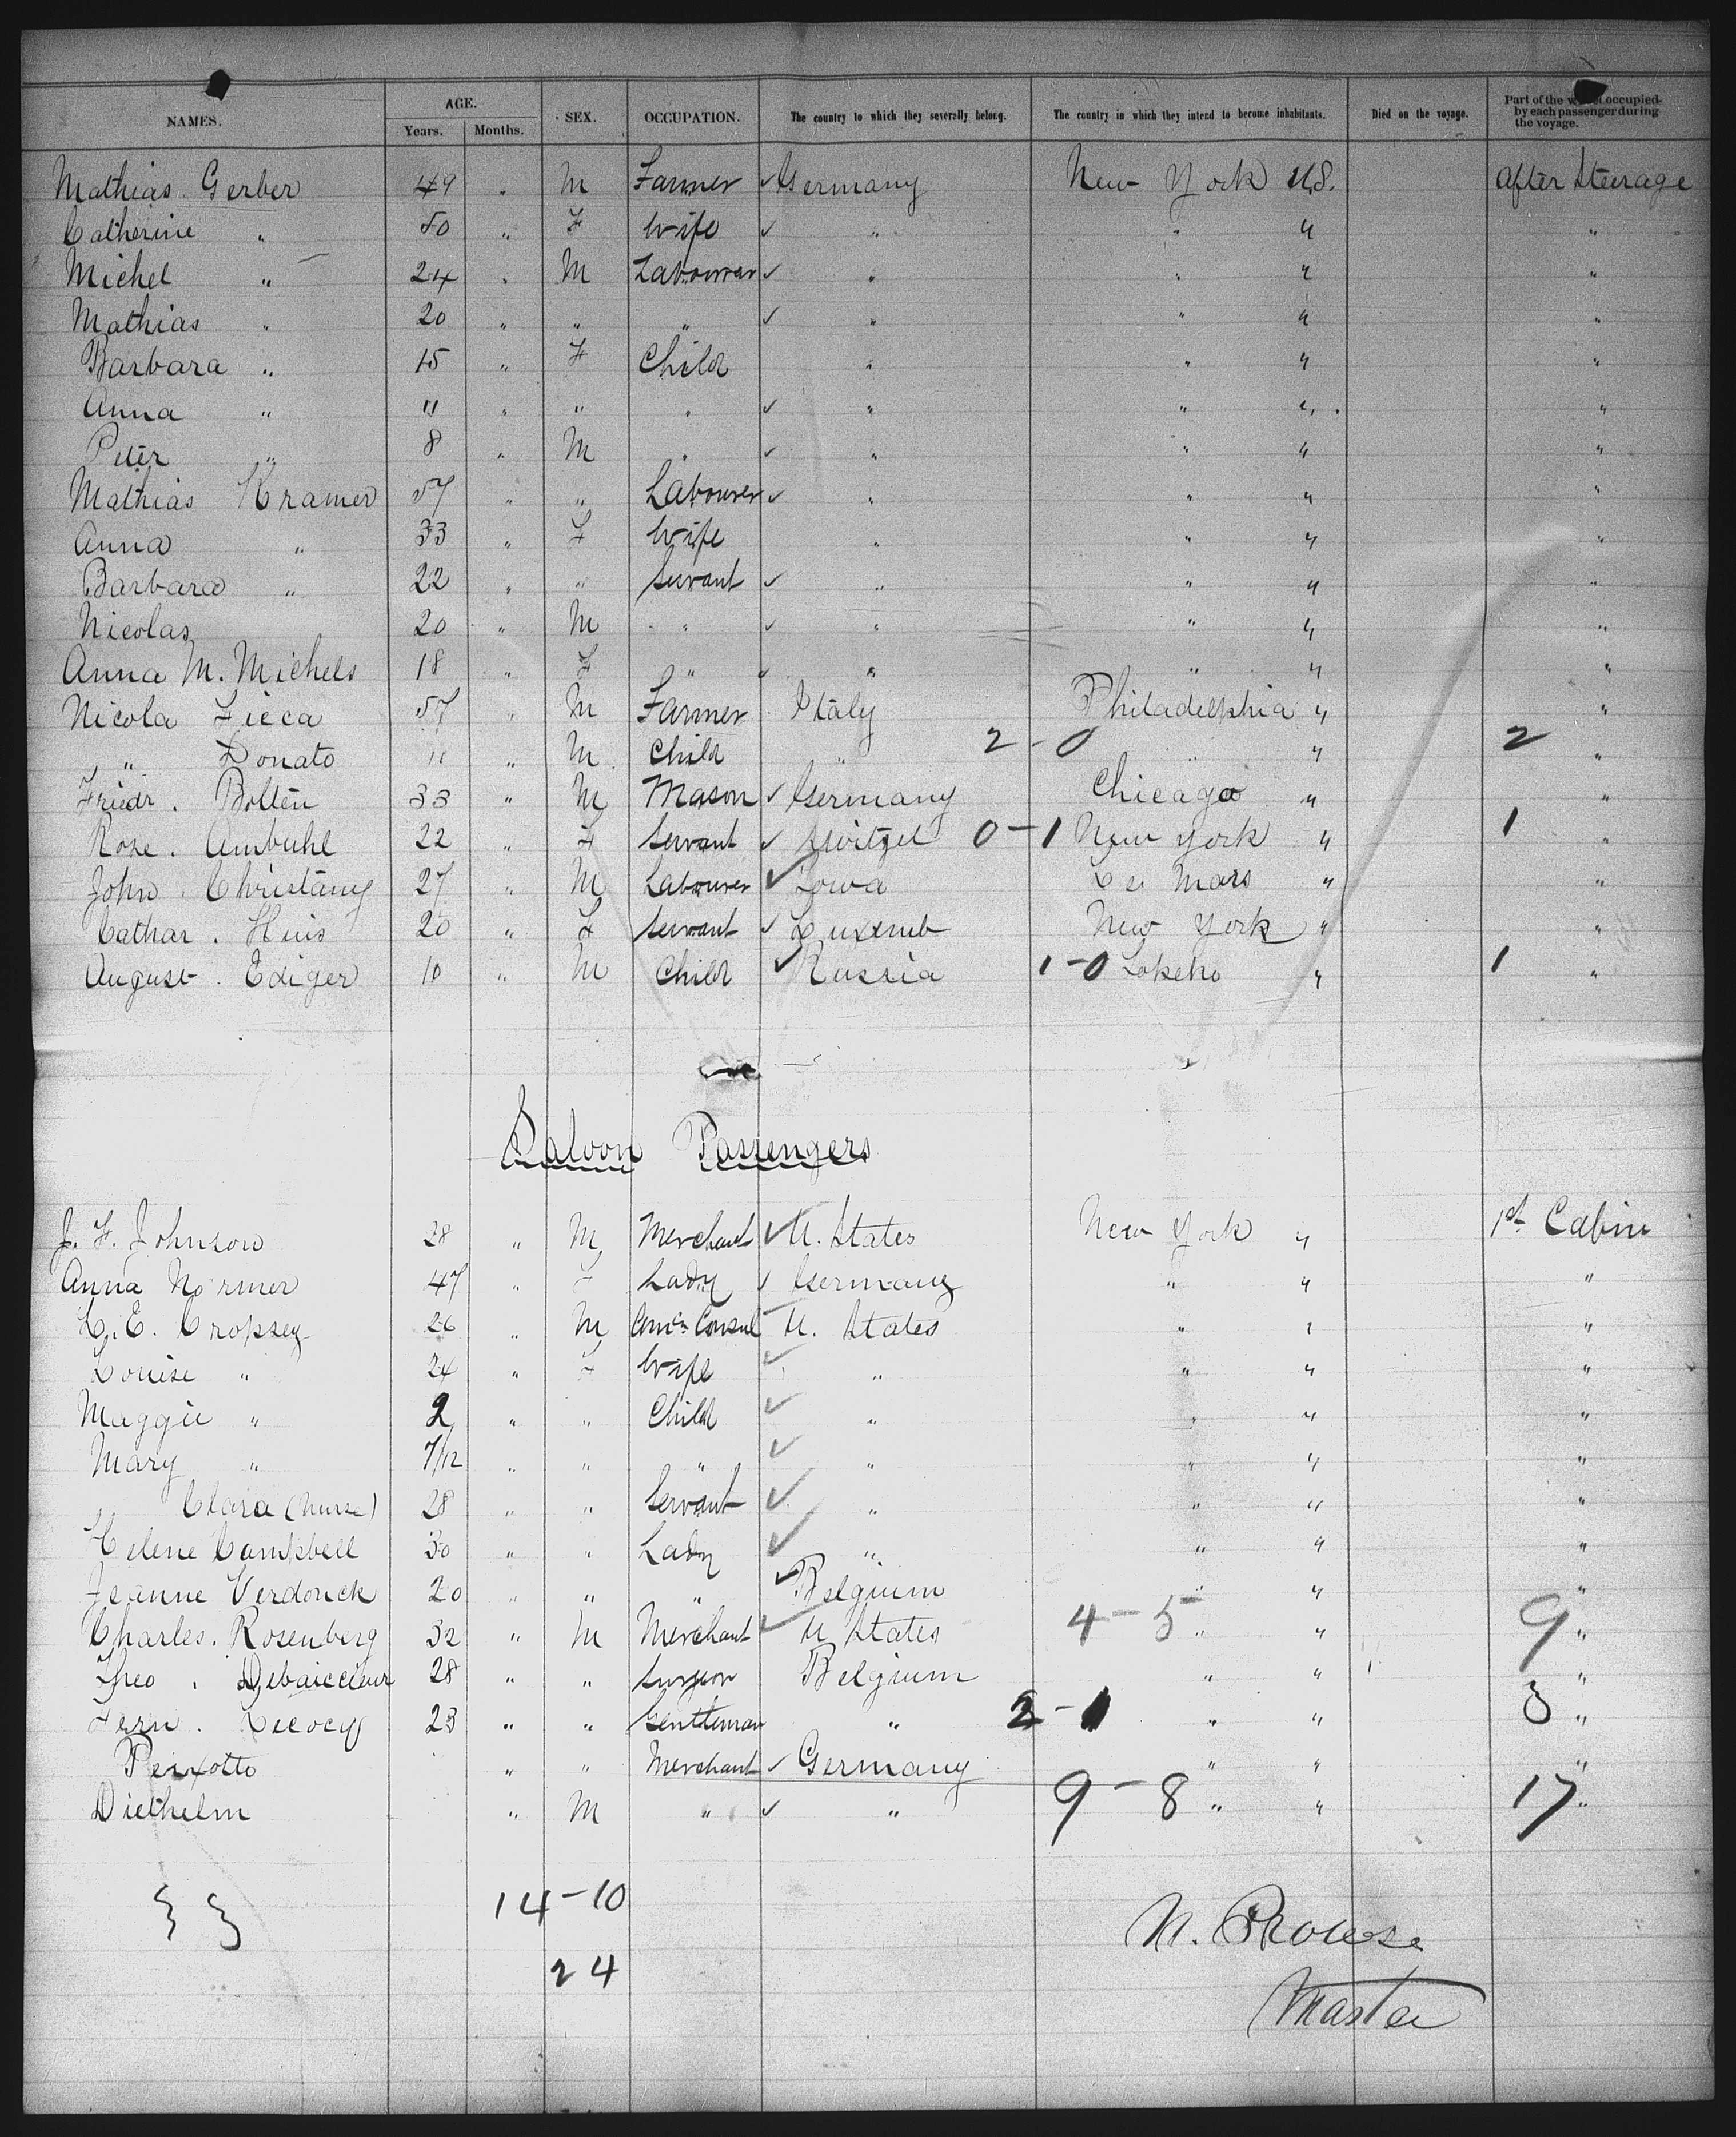 NAMES. AGE. Years. Months. SEX. OCCUPATION. The country to which they severally belong. The country in which they intend to become inhabitants. Died on the voyage. Part of the vessel occupied by each passenger during the voyage.
Mathias Gerber 49 " M Farmer ✓ Germany New York U.S. After Steerage
Catherine " 50 " F Wife ✓ " " " "
Michel " 24 " M Labourer ✓ " " " "
Mathias " 20 " " " ✓ " " " "
Barbara " 15 " F Child " " " "
Anna " 11 " " " ✓ " " " "
Peter " 8 " M " ✓ " " " "
Mathias Kramer 57 " " Labourer ✓ " " " "
Anna " 33 " F Wife " " " "
Barbara " 22 " " Servant ✓ " " " "
Nicolas 20 " M " ✓ " " " "
Anna M. Michels 18 " F " ✓ " " " "
Nicola Ficca 57 " M Farmer Italy Philadelphia " "
" Donato 11 " M Child " 2-0 " " 2 "
Friedr. Bolten 33 " M Mason ✓ Germany Chicago " "
Rose. Ambuhl 22 " F Servant ✓ Switzel 0-1 New York " 1 "
John. 27 " M Labourer ✓ Iowa Le Mars " "
Cathar. 20 " F Servant ✓ Luxemb New York " "
August. Ediger 10 " M Child ✓ Russia 1-0 " 1 "
Saloon Passengers
J. F. Johnson 28 " M Merchant ✓ U. States New York " 1st Cabin
Anna Normer 47 " F Lady ✓ Germany " " "
E. Cropsey 26 " M Consul U. States " " "
Louise " 24 " F Wife ✓ " " " "
Maggie " 2 " " Child ✓ " " " "
Mary " 7/12 " " " ✓ " " " "
" Clara (Nurse) 28 " " Servant ✓ " " " "
Helene Campbell 30 " " Lady ✓ " " " "
Jeanne Verdonck 20 " " " ✓ Belgium " " "
Charles. Rosenberg 32 " M Merchant ✓ U States 4-5 " " 9 "
Theo. 28 " " Surgeon Belgium " " "
Fern. Lecocq 23 " " Gentleman " 2-1 " " 3 "
Peixotto " " Merchant ✓ Germany " " "
Diethelm " M " ✓ " 9-8 " " 17 "
14-10
24
N. Prowse
Master